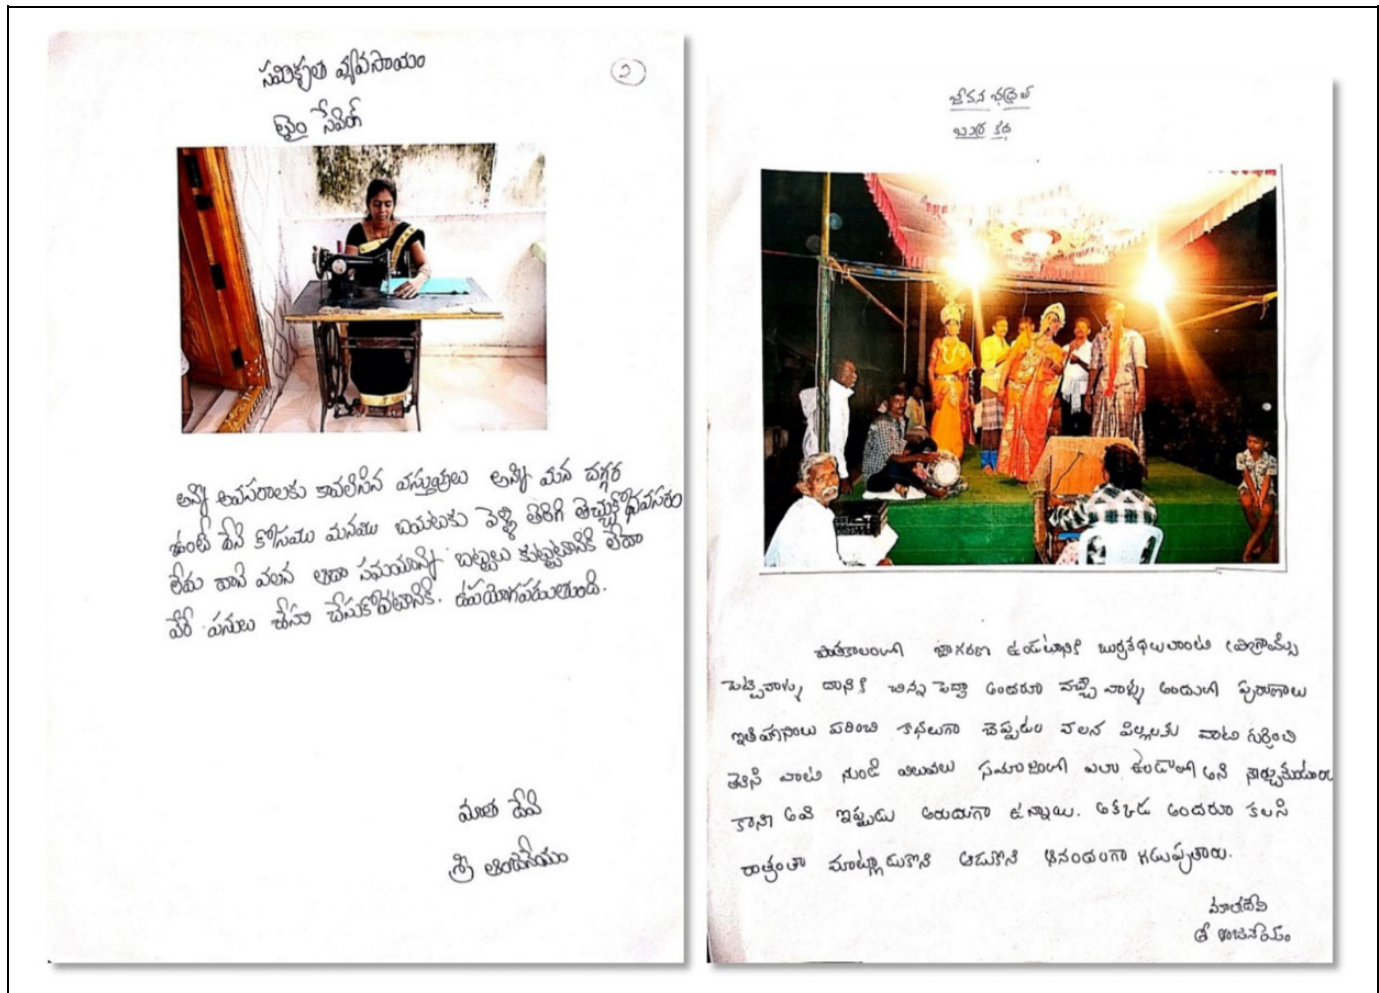 సమీకృత వ్యవసాయం
౨
టైం సేవింగ్
అన్ని అవసరాలకు కావలిసిన వస్తువులు అన్ని మన దగ్గర
ఉంటే దేని కోసము మనము బయటకు వెళ్ళి తిరిగి తెచ్చుకోనవసరం
లేదు దాని వలన ఆదా సమయాన్ని బట్టలు కుట్టటానికి లేదా
వేరే పనులు చేసుకోవటానికి. ఉపయోగపడుతుంది.
మాత దేవి
శ్రీ ఆంజనేయం
జీవన
బుర్ర కథ
పాతకాలంలో జాగరణ ఉండటానికి బుర్రకథలులాంటి ప్రోగ్రామ్స్
పెట్టెవాళ్ళు దానికి చిన్న పెద్దా అందరూ వచ్చే వాళ్ళు అందులో పురాణాలు
ఇతిహాసాలు గురించి కాథలుగా చెప్పడం వలన పిల్లలకు వాటి గుర్రించి
తెలిసి వాటి నుండి విలువలు సమాజంలో ఎలా ఉండాలో అని
కాని అవి ఇప్పుడు అరుదుగా ఉన్నాయి. అక్కడ అందరూ కలసి
రాత్రంతా మాట్లాడుకొని ఆడుకొని ఆనందంగా గడుపుతారు.
మాతదేవి
శ్రీ ఆంజనేయం